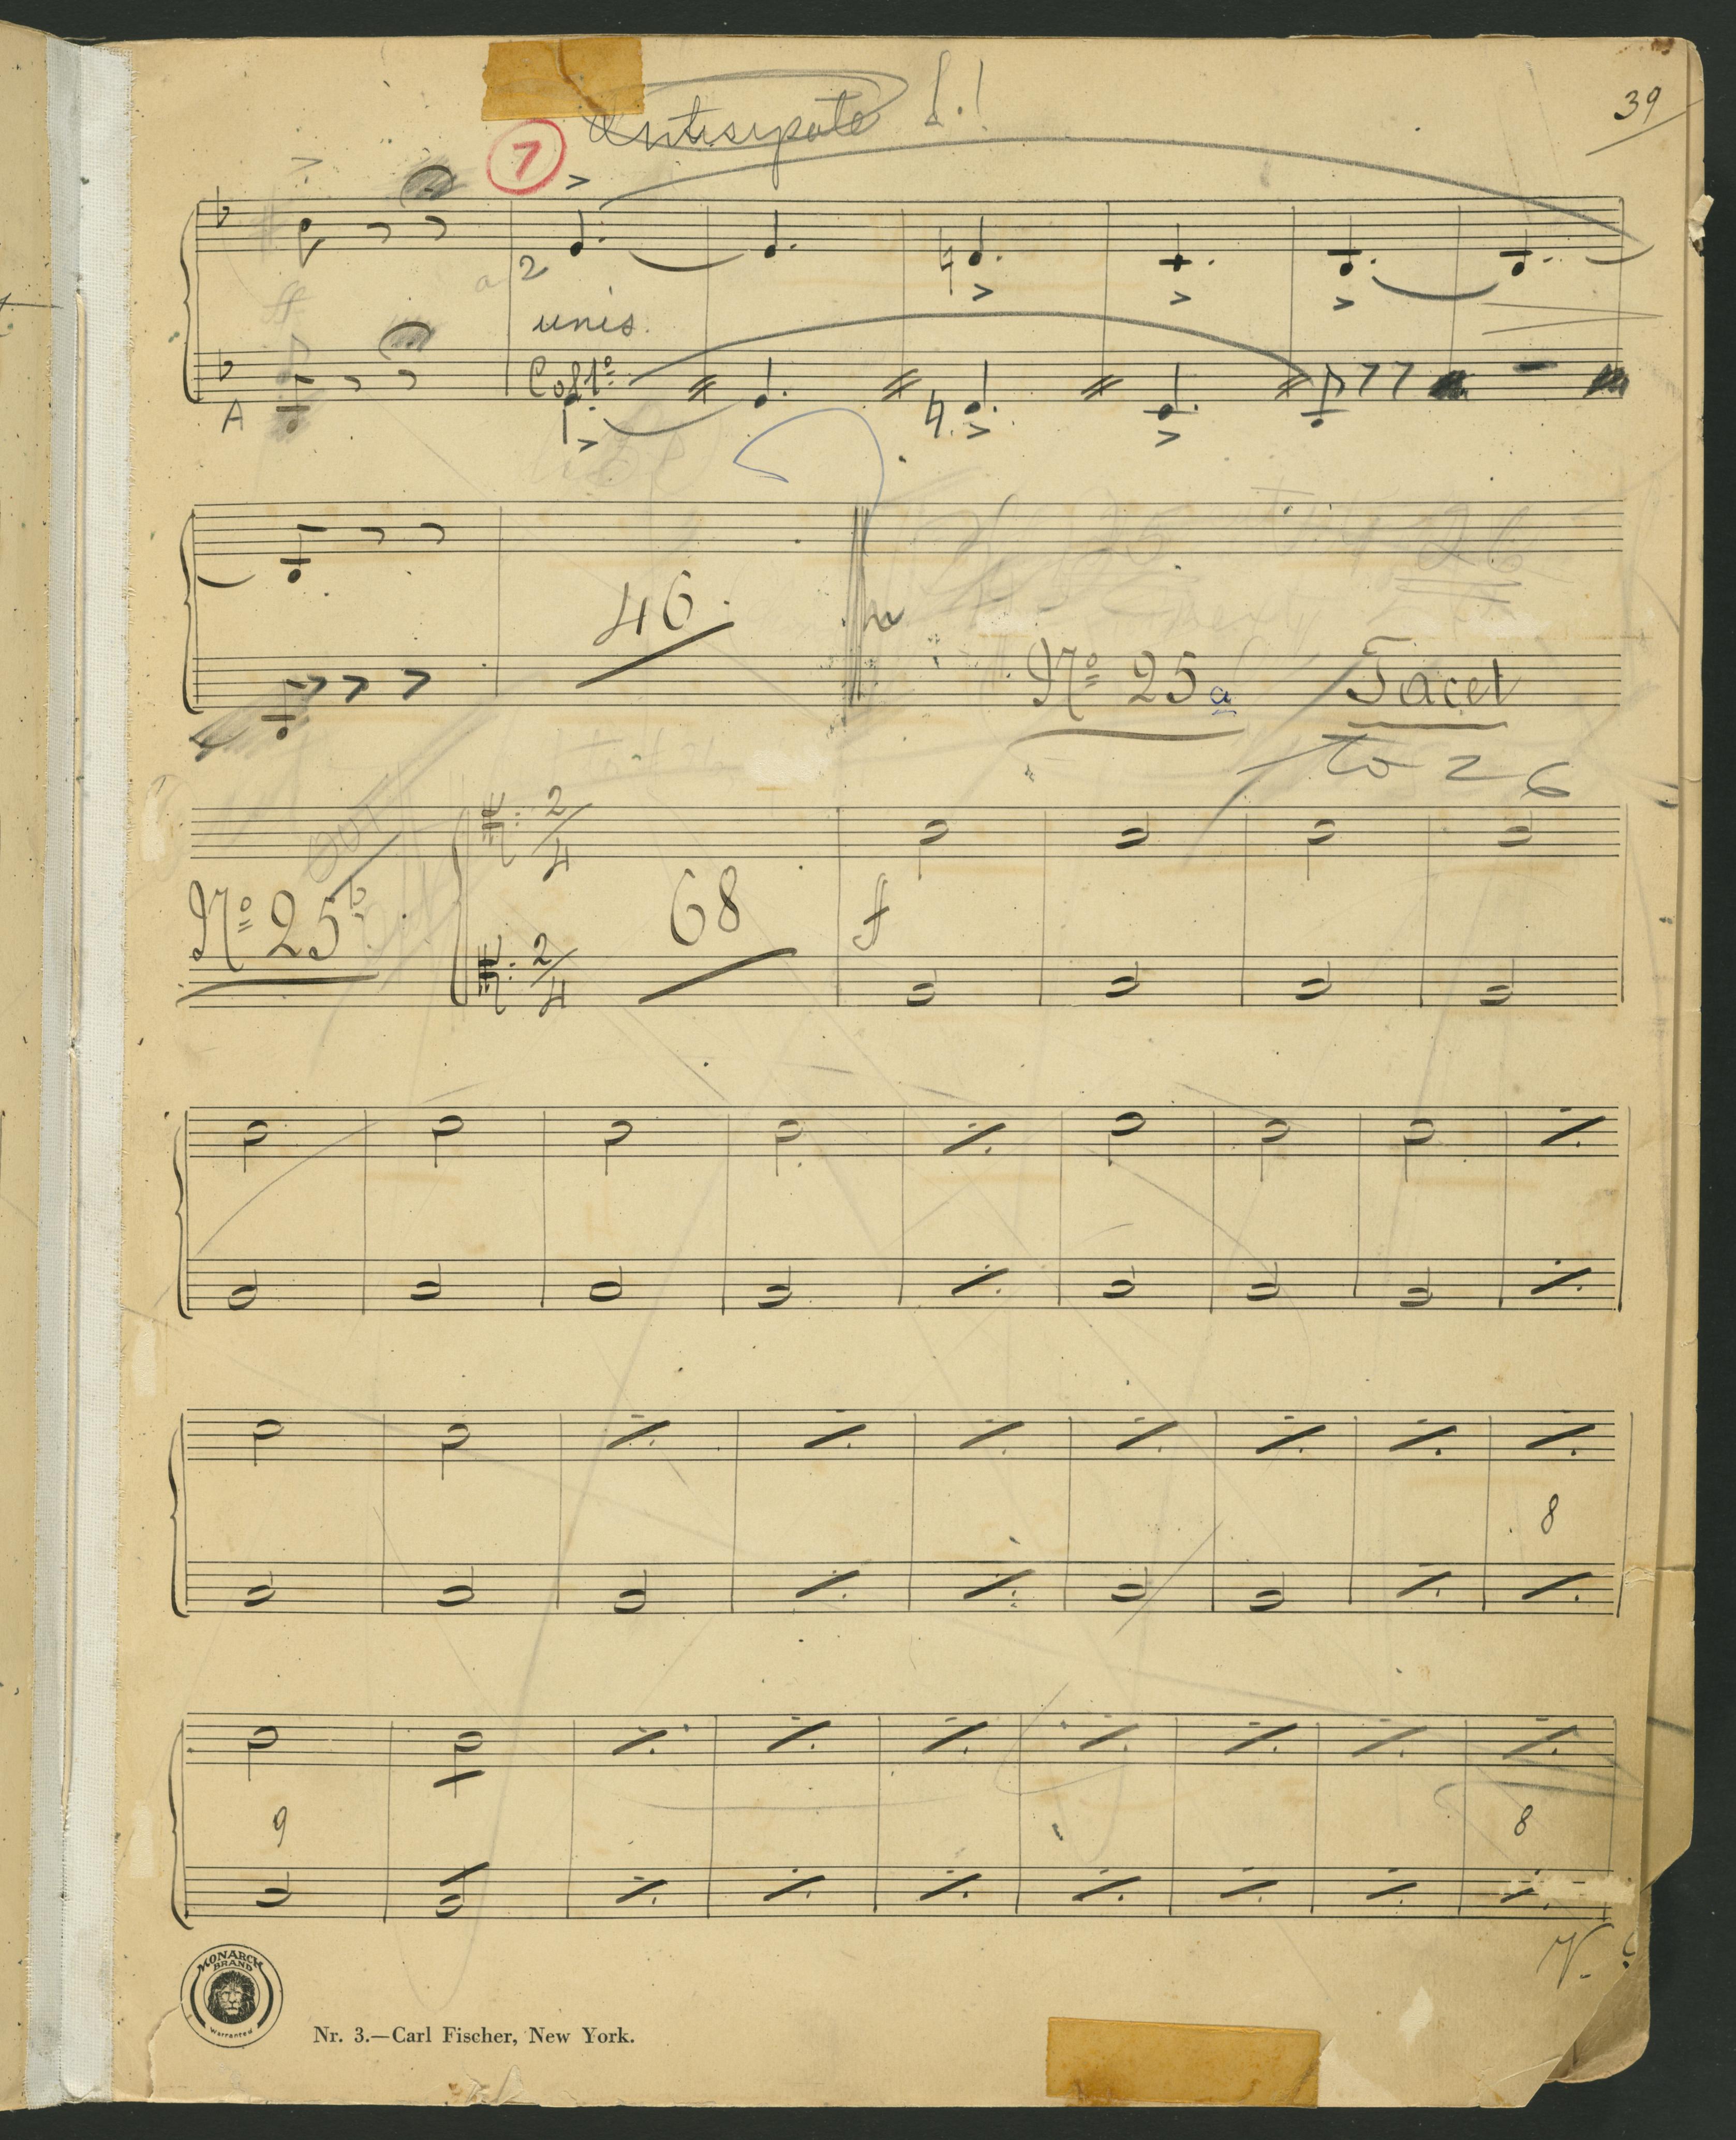 39
Antisipate !
7
a 2
unis.
Col 1º
A
46
Nº 25a Tacet
to 26
OUT
Nº 25b
2/4 68 f
2/4
8
9 8
V.
MONARCH BRAND
Warranted
Nr. 3.—Carl Fischer, New York.